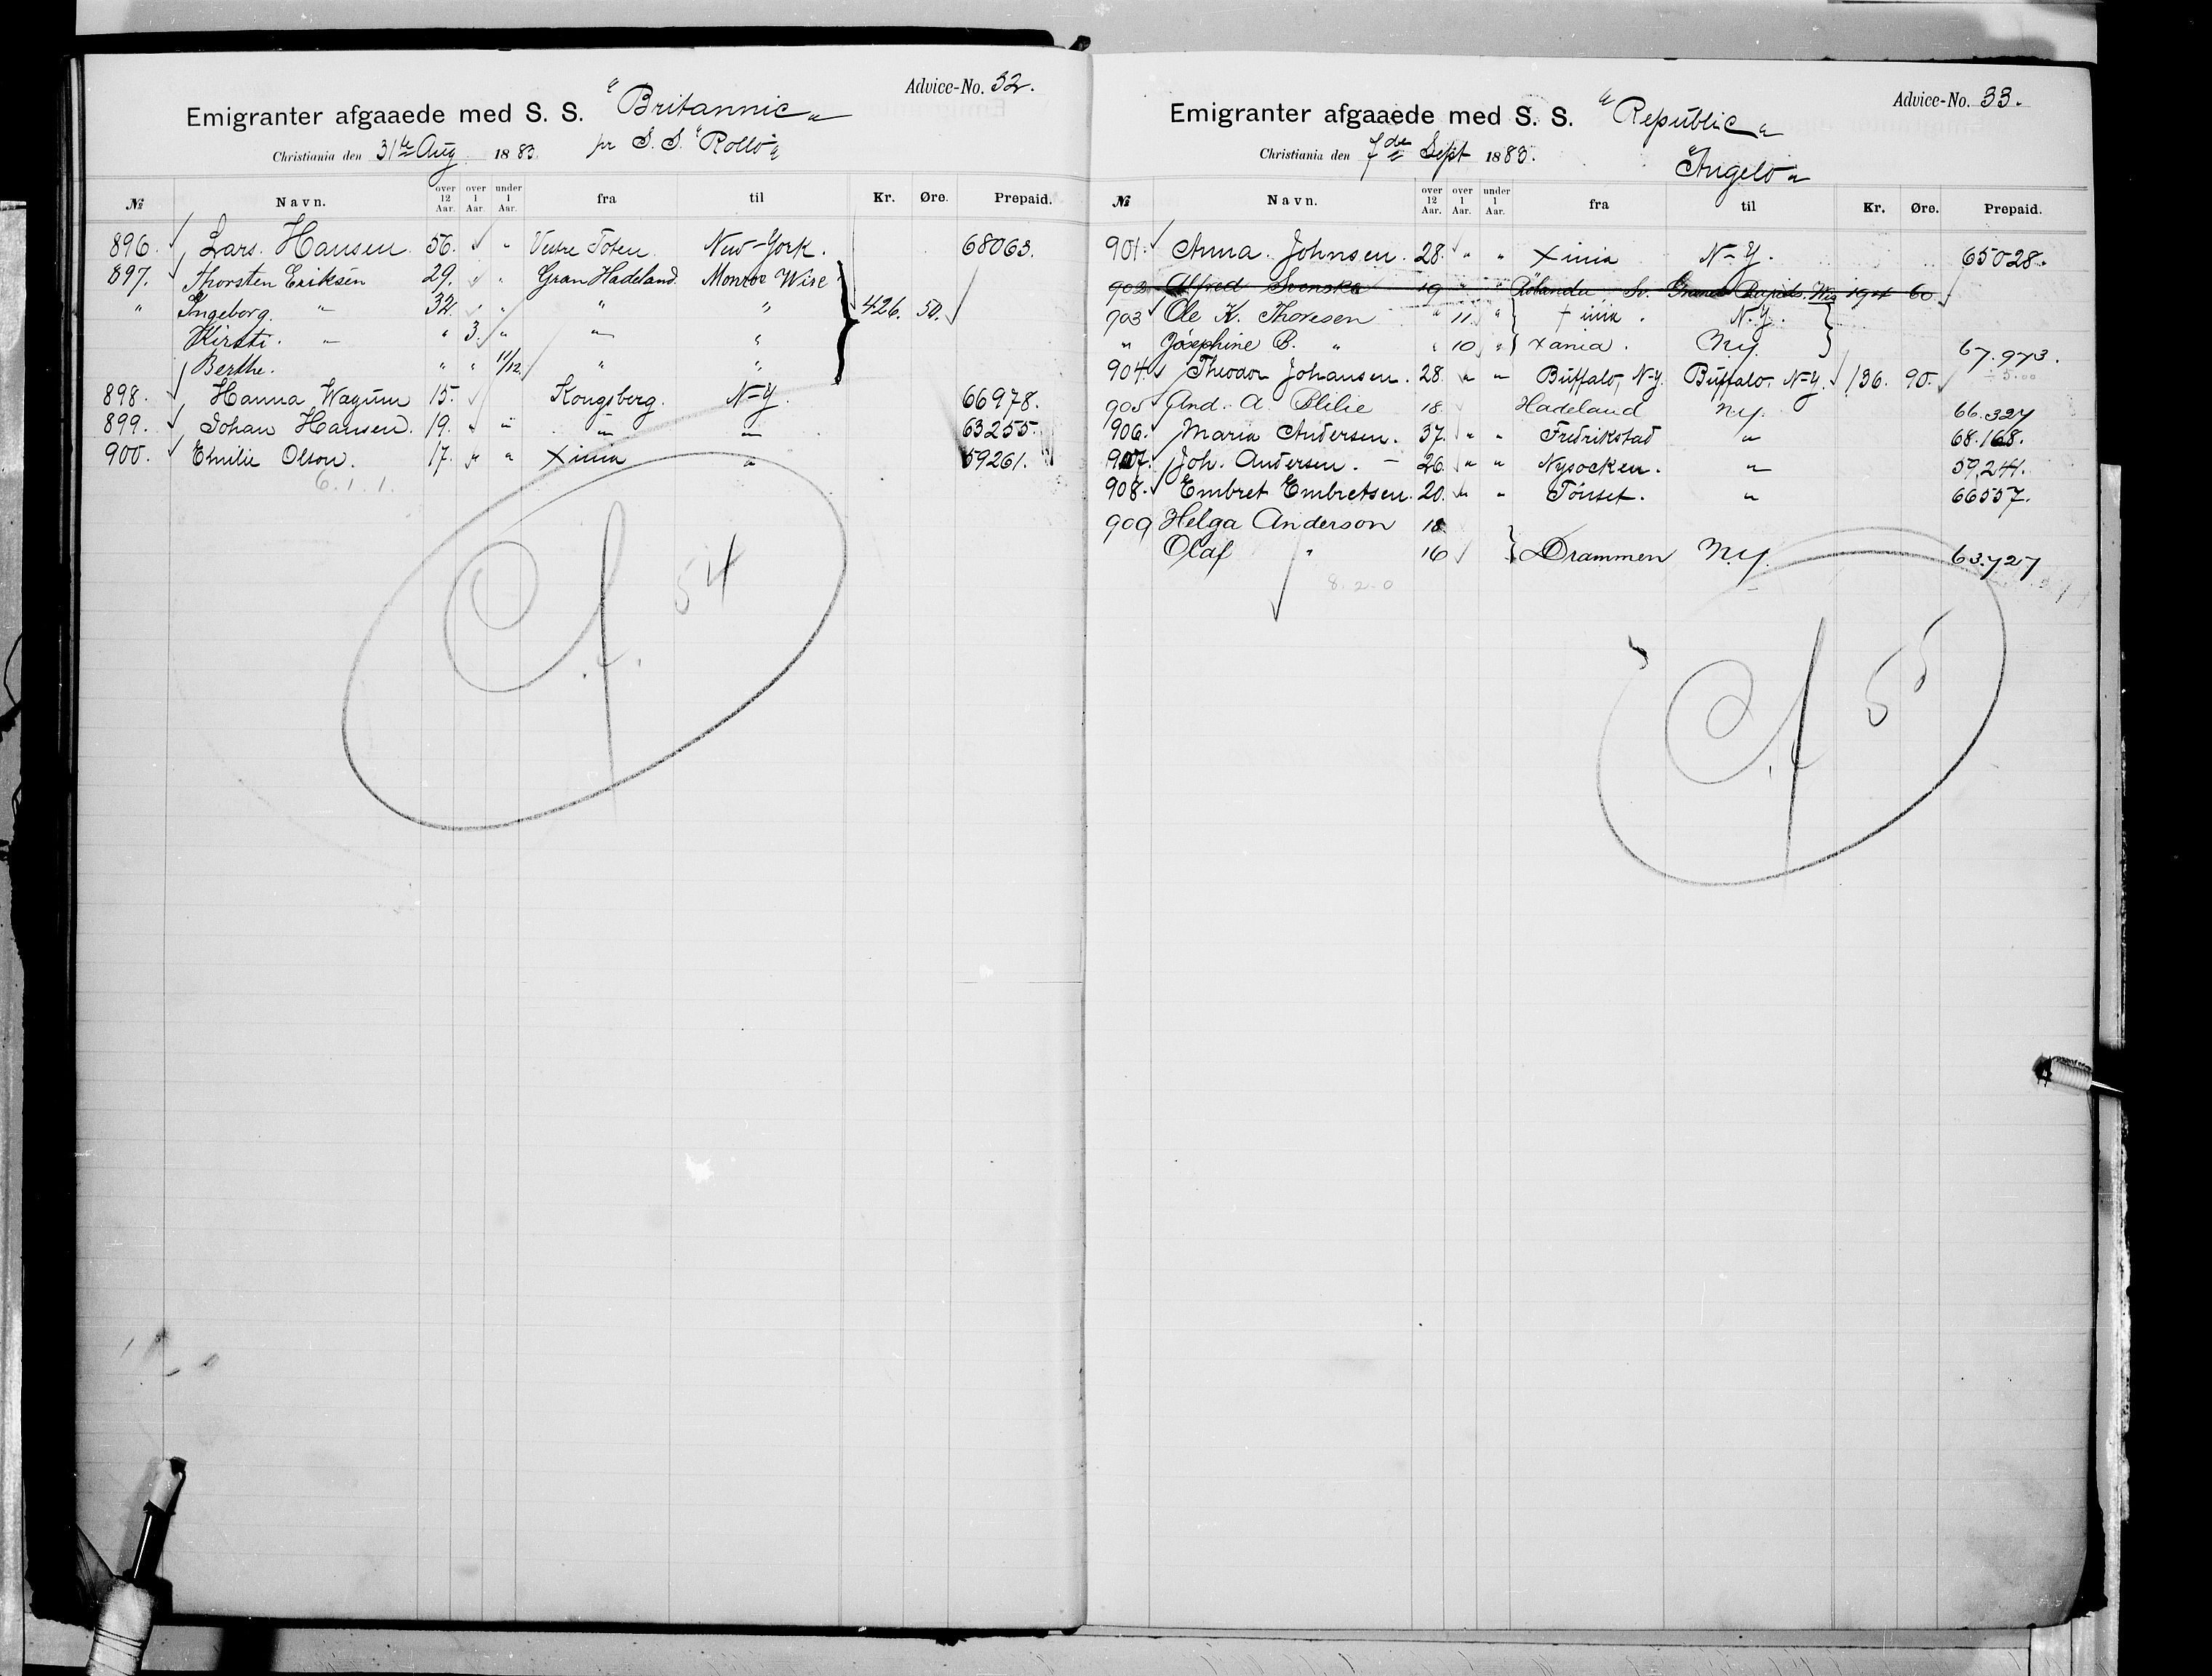 Advice-No. 32.
Emigranter afgaaede med S. S. "Britannic"
Christiania den 31te Aug. 1883. pr S. S. "Rollo"
№ Navn. over 12 Aar. over 1 Aar. under 1 Aar. fra til Kr. Øre. Prepaid.
896. Lars. Hansen. 56. " Vestre Toten New-York. 68063.
897. Thorsten Eriksen 29. " " Gran Hadeland. Monroe Wisc
" Ingeborg. " 32. " " " " 426. 50.
Kirsti. " " 3. " " "
Berthe. " " 11/12. " "
898. Hanna Wagum 15. Kongsberg. N-Y. 66978.
899. Johan Hansen. 19. " " " " 63255.
900. Emilie Olson. 17. " " Xinia " 59261.
6. 1. 1.
Cf. 54
Advice-No. 33.
Emigranter afgaaede med S. S. "Republic"
Christiania den 7de Sept 1883. "Angelo"
№ Navn. over 12 Aar. over 1 Aar. under 1 Aar. fra til Kr. Øre. Prepaid.
901. Anna. Johnsen. 28. " " Xinia N-Y. 65028.
902. Alfred Svenske 19 " " Rölanda, Sv. Grand Rapids. Wis 194 60
903 Ole K. Thoresen " 11. " inia. N.Y.
" Josephine B. " " 10 " Xania. N.Y. 67.973.
904. Theodor Johansen. 28. " " Buffalo, N-Y. Buffalo, N-Y. 136. 90.
905 And. A. 18. Hadeland N.Y. 66.327
906. Maria Andersen. 37. " " Fredrikstad " 68.168.
907. Joh. Andersen. 26. " " Nysocken. " 59.241.
908. Embret Embretsen. 20. " " Tönset. " 66557.
909 Helga Anderson 18
Olaf " 16 Drammen N.Y. 63.727
8. 2. 0
Cf. 55